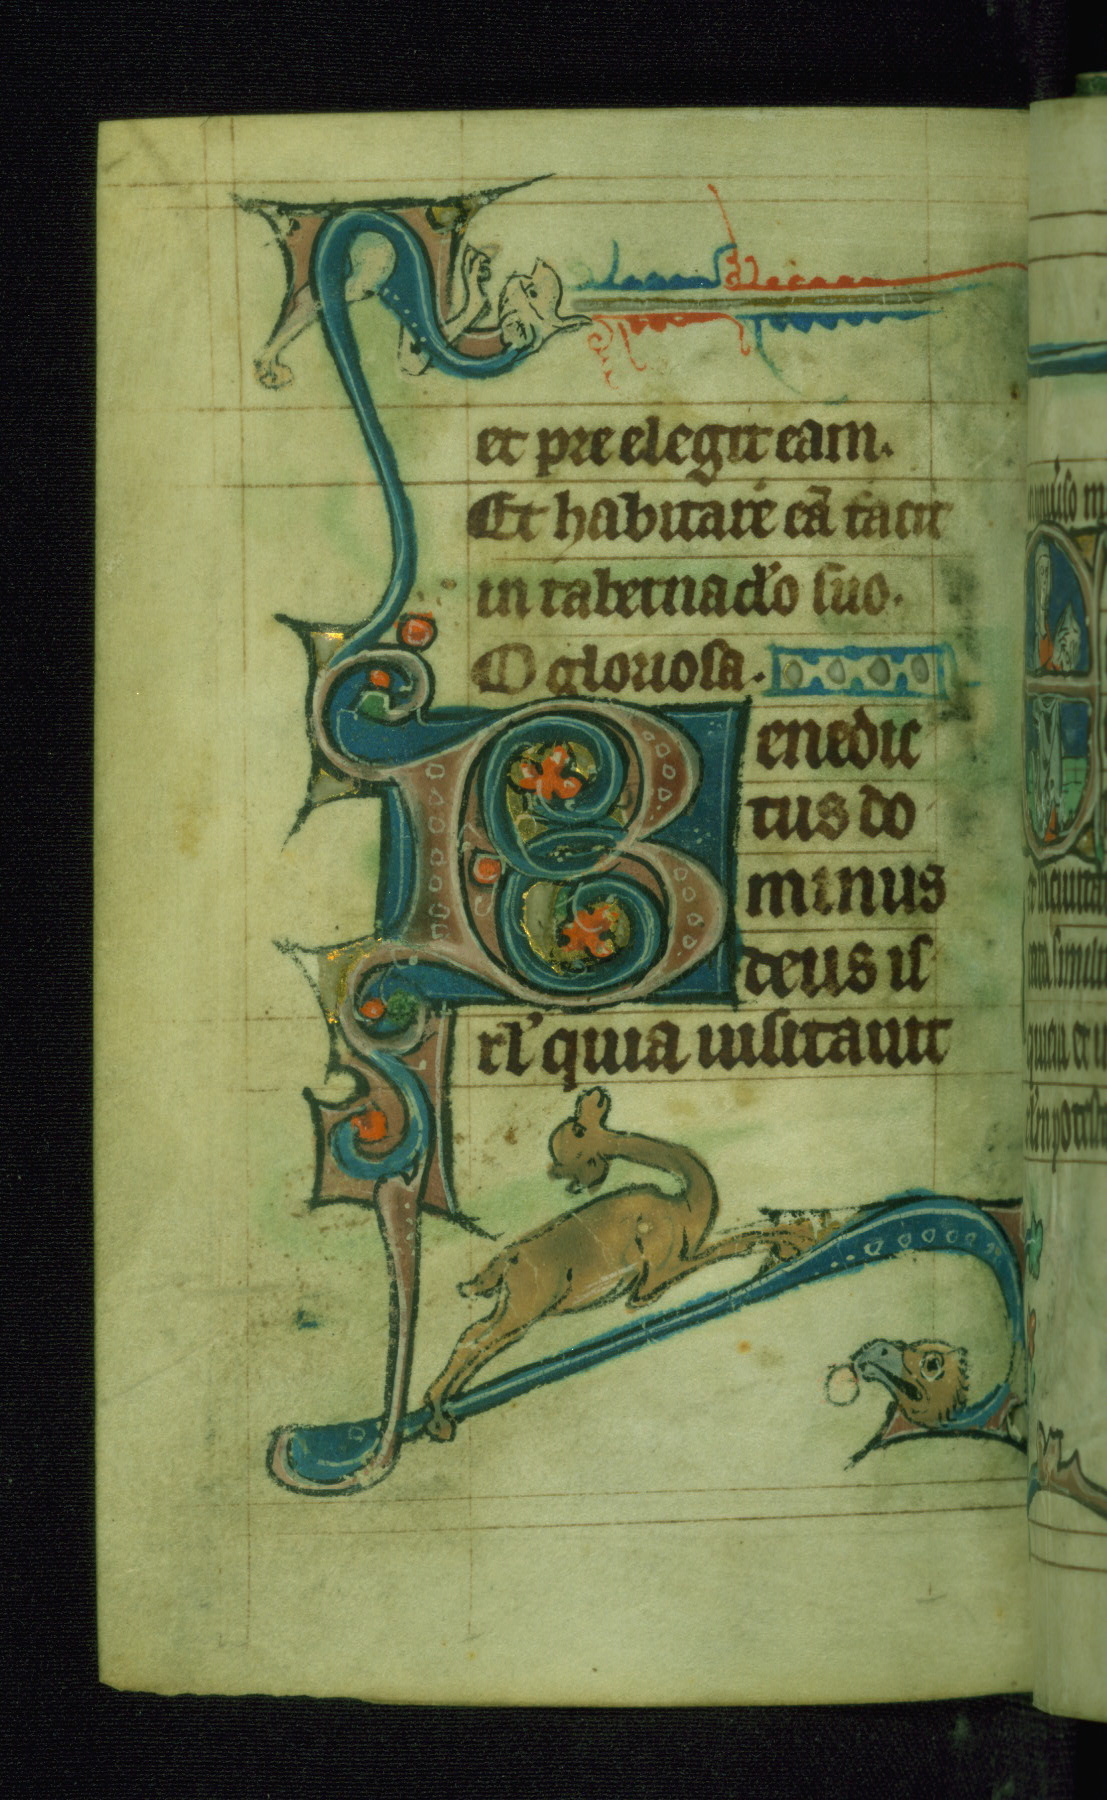 et pre elegit eam.
Et habitare eā facit
in tabernaclo suo.
O gloriosa.
Benedic
tus do
minus
deus is
rl' quia uisitauit